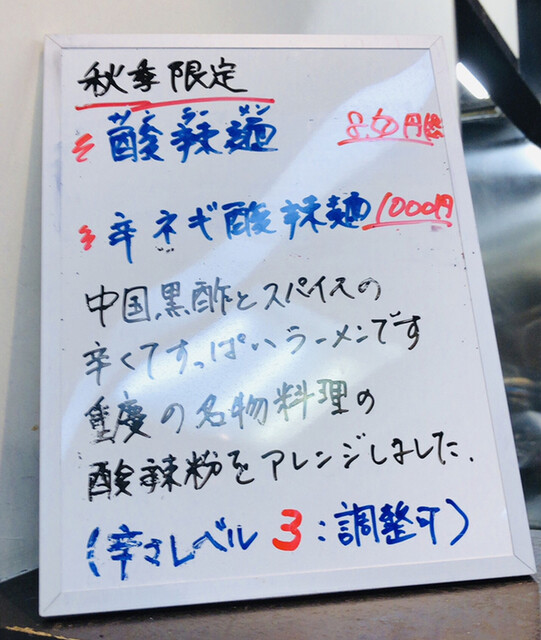 秋季限定
サンラーメン
酸辣麺 円
辛ネギ酸辣麺 1000円
中国黒酢とスパイスの
辛くてすっぱいラーメンです
重慶の名物料理の
酸辣粉をアレンジしました.
(辛さレベル3:調整可)